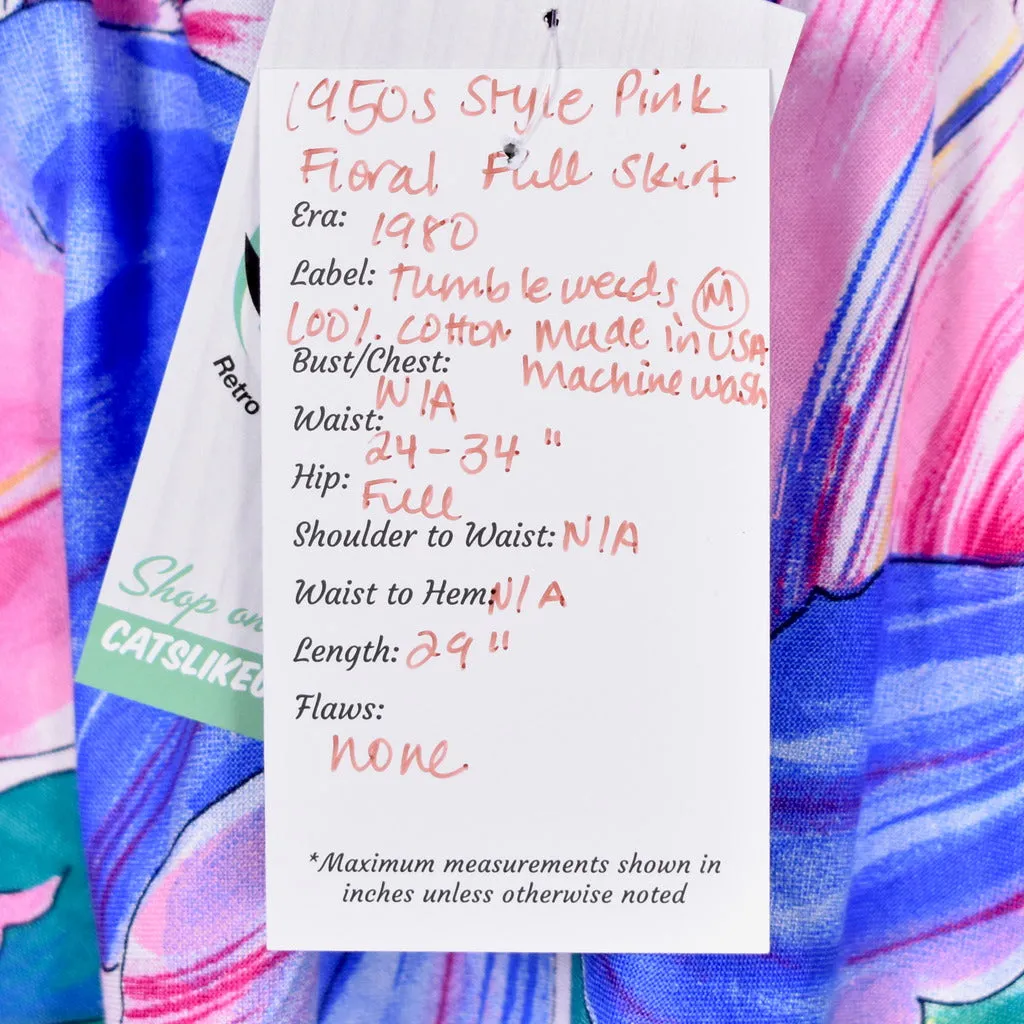 1950s Style Pink
Floral Full Skirt
Era: 1980
Label: Tumbleweeds M
100% cotton made in USA
Machine wash
Bust/Chest:
N/A
Waist:
24-34"
Hip: Full
Shoulder to Waist: N/A
Waist to Hem: N/A
Length: 29"
Flaws:
none
*Maximum measurements shown in
inches unless otherwise noted
Retro
Shop on
CATSLIKE